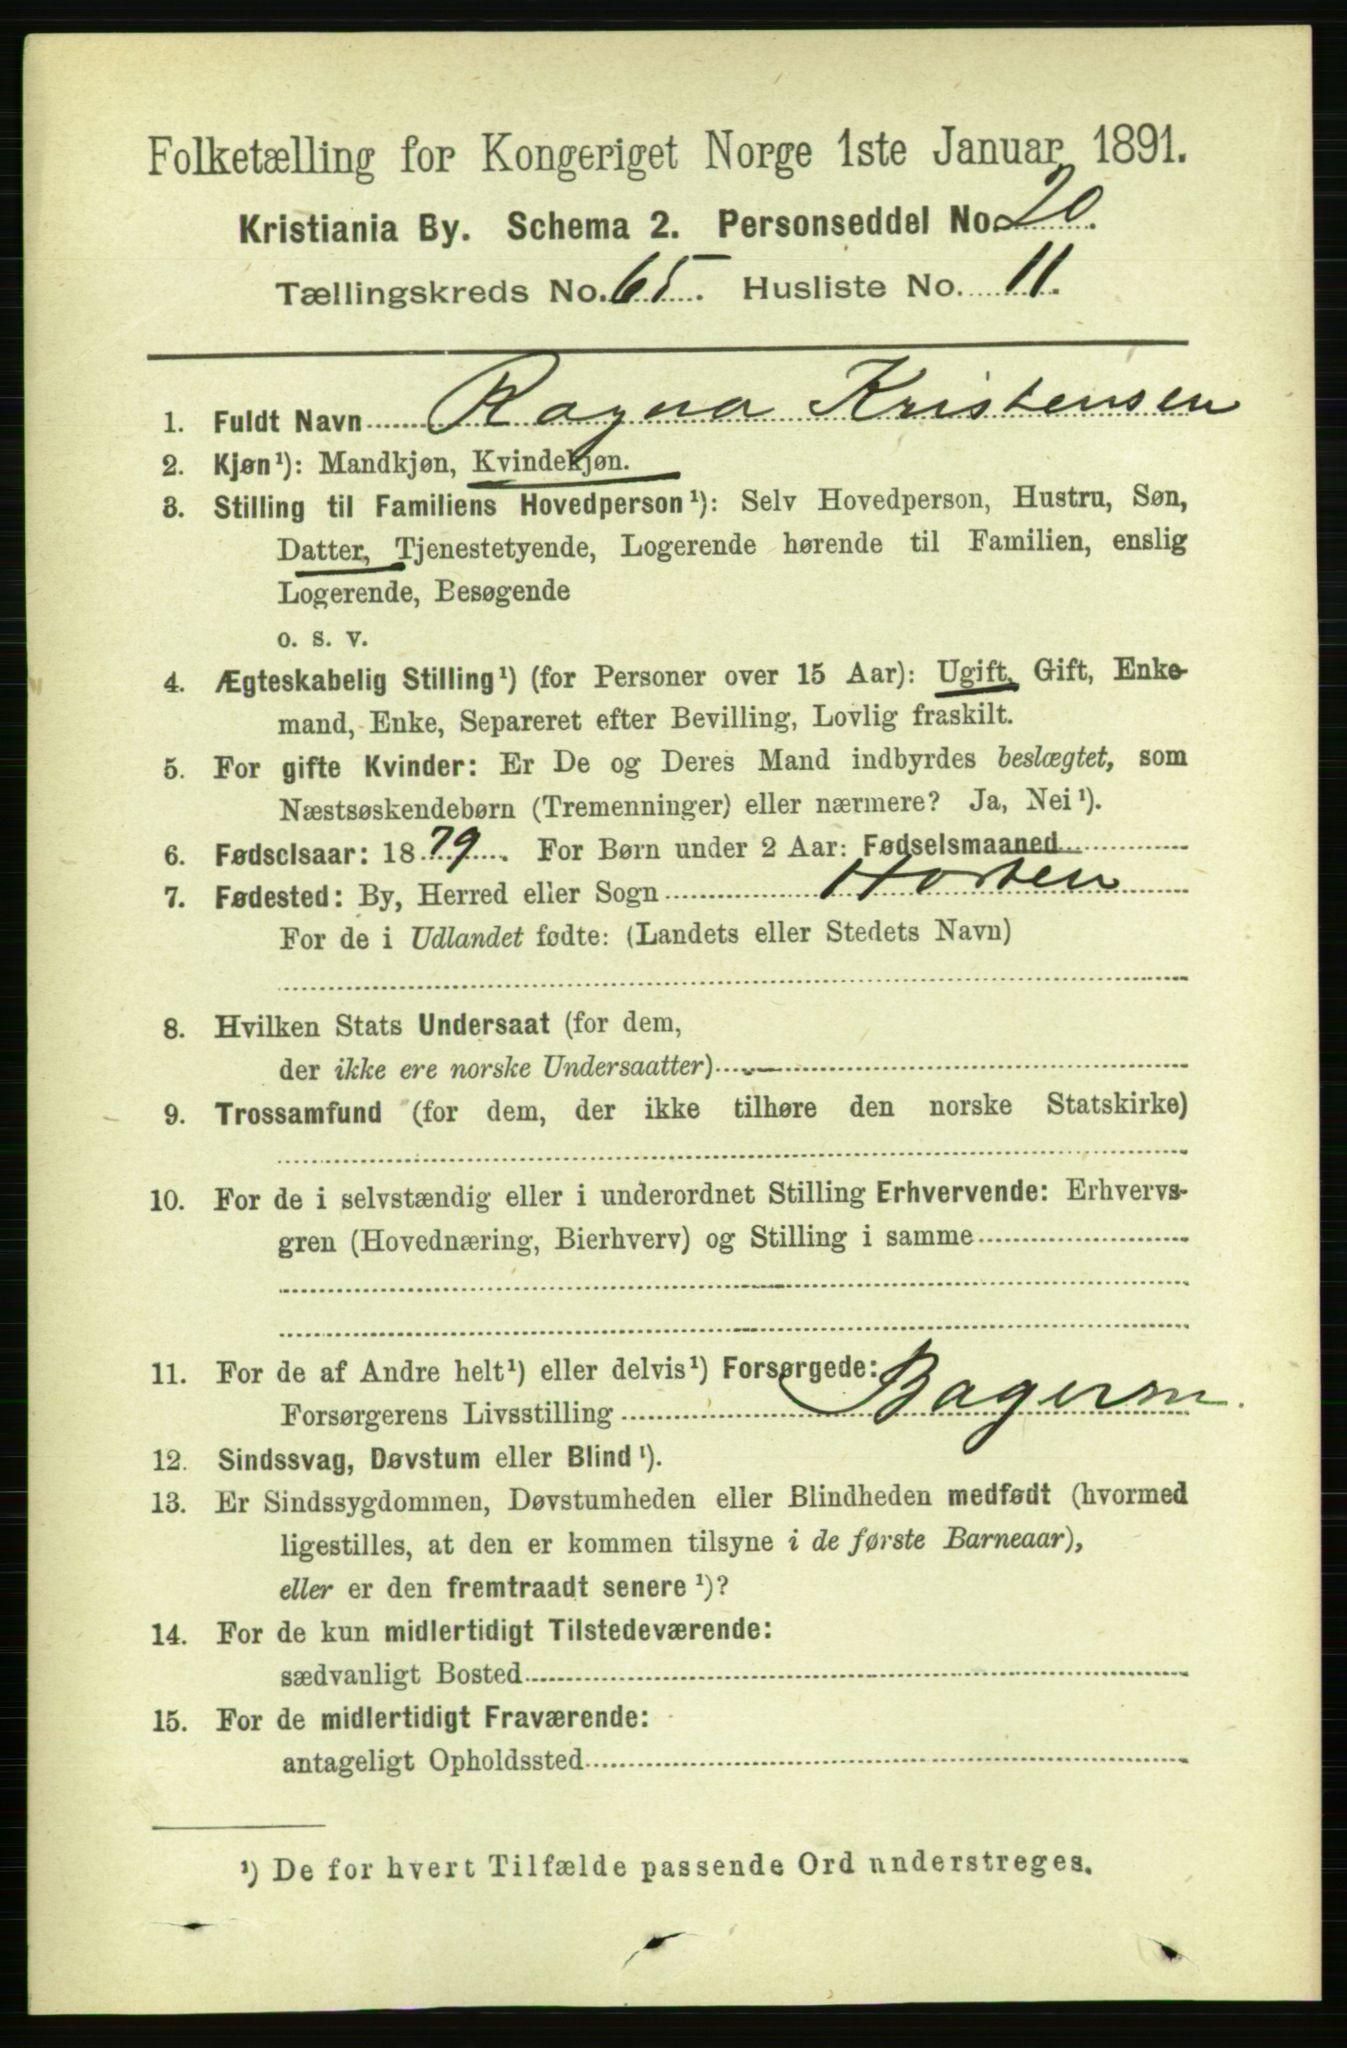 Folketælling for Kongeriget Norge 1ste Januar 1891.
Kristiania By. Schema 2. Personseddel No. 20.
Tællingskreds No. 65. Husliste No. 11.
1. Fuldt Navn Ragna Kristensen
2. Kjøn¹): Mandkjøn, Kvindekjøn.
3. Stilling til Familiens Hovedperson¹): Selv Hovedperson, Hustru, Søn,
Datter, Tjenestetyende, Logerende hørende til Familien, enslig
Logerende, Besøgende
o. s. v.
4. Ægteskabelig Stilling¹) (for Personer over 15 Aar): Ugift, Gift, Enke-
mand, Enke, Separeret efter Bevilling, Lovlig fraskilt.
5. For gifte Kvinder: Er De og Deres Mand indbyrdes beslægtet, som
Næstsøskendebørn (Tremenninger) eller nærmere? Ja, Nei¹).
6. Fødselsaar: 1879. For Børn under 2 Aar: Fødselsmaaned
7. Fødested: By, Herred eller Sogn Horten
For de i Udlandet fødte: (Landets eller Stedets Navn)
8. Hvilken Stats Undersaat (for dem,
der ikke ere norske Undersaatter)
9. Trossamfund (for dem, der ikke tilhøre den norske Statskirke)
10. For de i selvstændig eller i underordnet Stilling Erhvervende: Erhvervs-
gren (Hovednæring, Bierhverv) og Stilling i samme
11. For de af Andre helt¹) eller delvis¹) Forsørgede:
Forsørgerens Livsstilling Bagersv.
12. Sindssvag, Døvstum eller Blind¹).
13. Er Sindssygdommen, Døvstumheden eller Blindheden medfødt (hvormed
ligestilles, at den er kommen tilsyne i de første Barneaar),
eller er den fremtraadt senere¹)?
14. For de kun midlertidigt Tilstedeværende:
sædvanligt Bosted
15. For de midlertidigt Fraværende:
antageligt Opholdssted
¹) De for hvert Tilfælde passende Ord understreges.